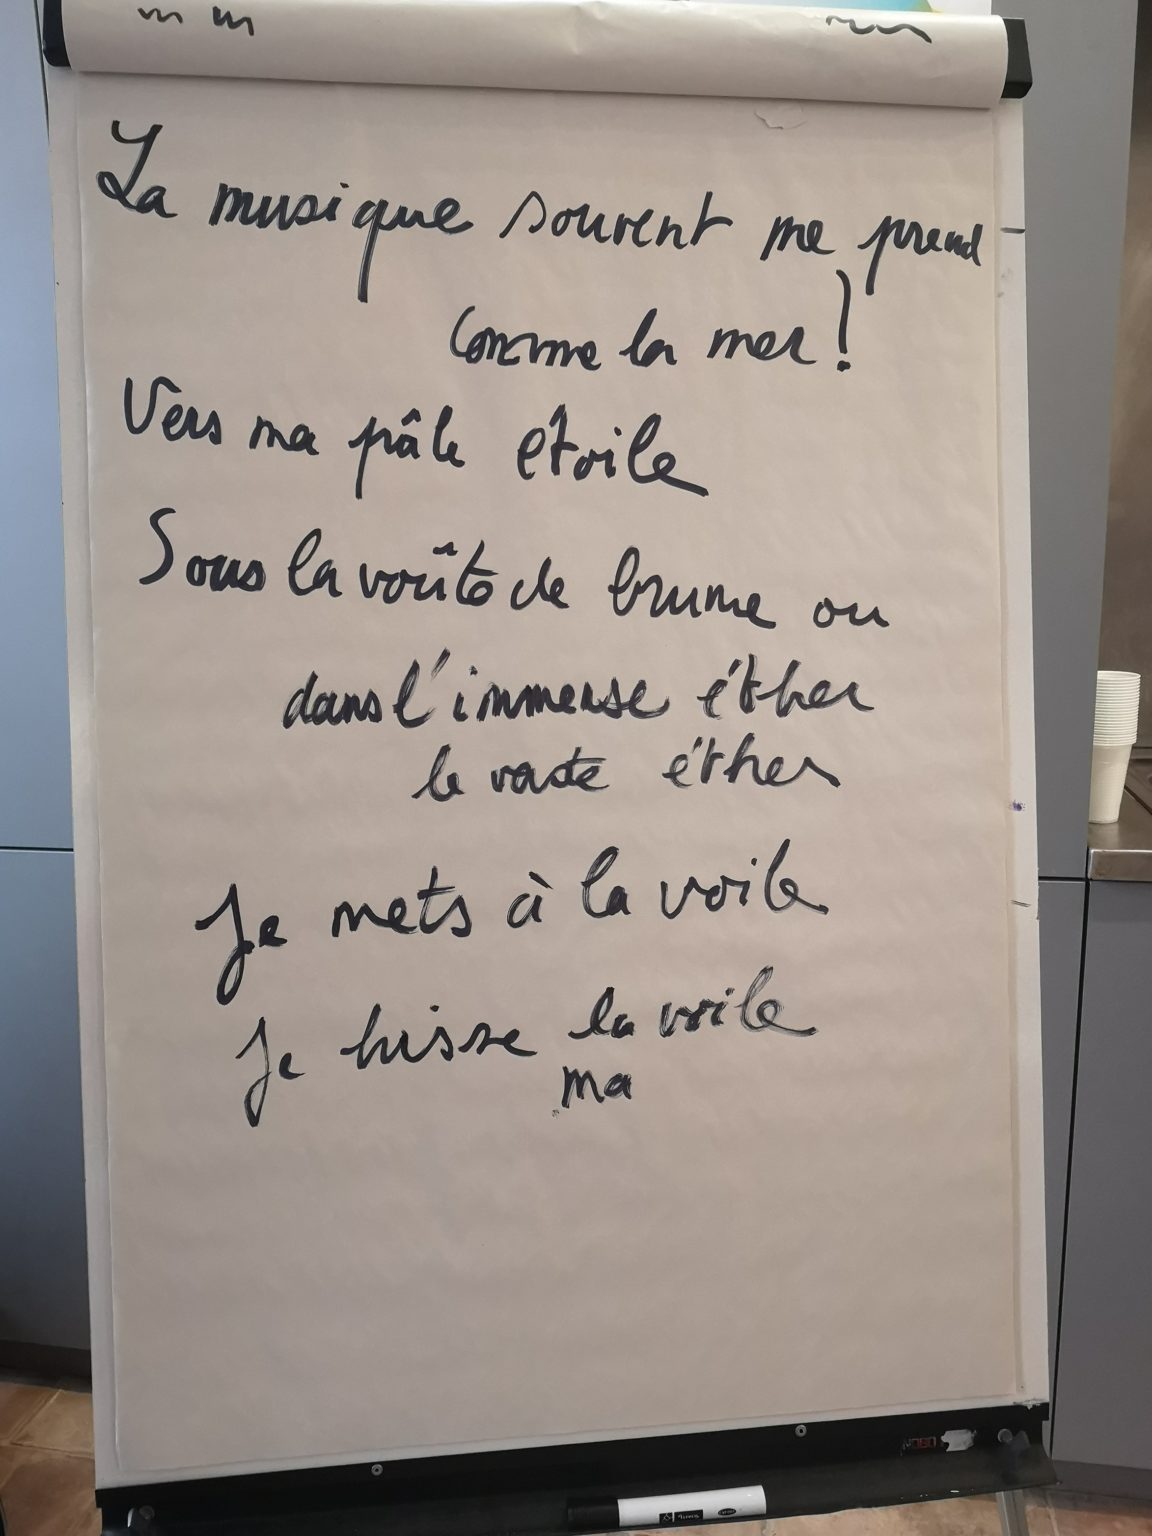 La musique souvent me prend
comme la mer !
Vers ma pâle étoile
Sous la voûte de brume ou
dans l'immense éther
le vaste éther
Je mets à la voile
Je hisse la voile
ma